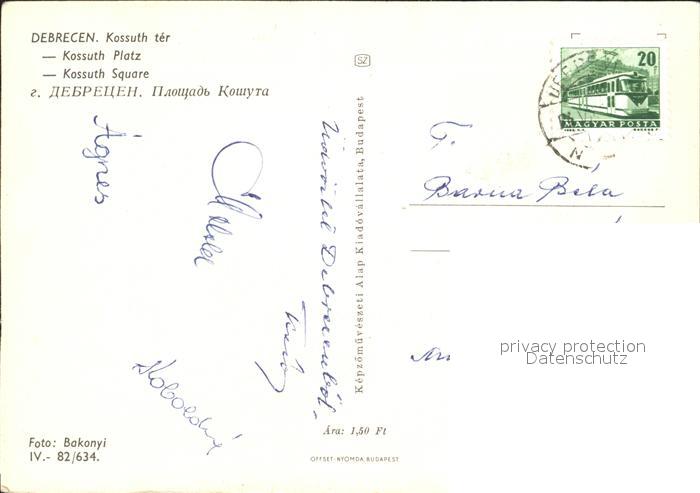 DEBRECEN. Kossuth tér
— Kossuth Platz
— Kossuth Square
г. ДЕБРЕЦЕН, Площадь Кошута
Ágnes
Üdvözlet Debrecenből
Képzőművészeti Alap Kiadóvállalata, Budapest
SZ
20
MAGYAR POSTA
T.
Barna Béla
privacy protection
Datenschutz
Foto: Bakonyi
IV.- 82/634.
Ára: 1,50 Ft
OFFSET-NYOMDA, BUDAPEST